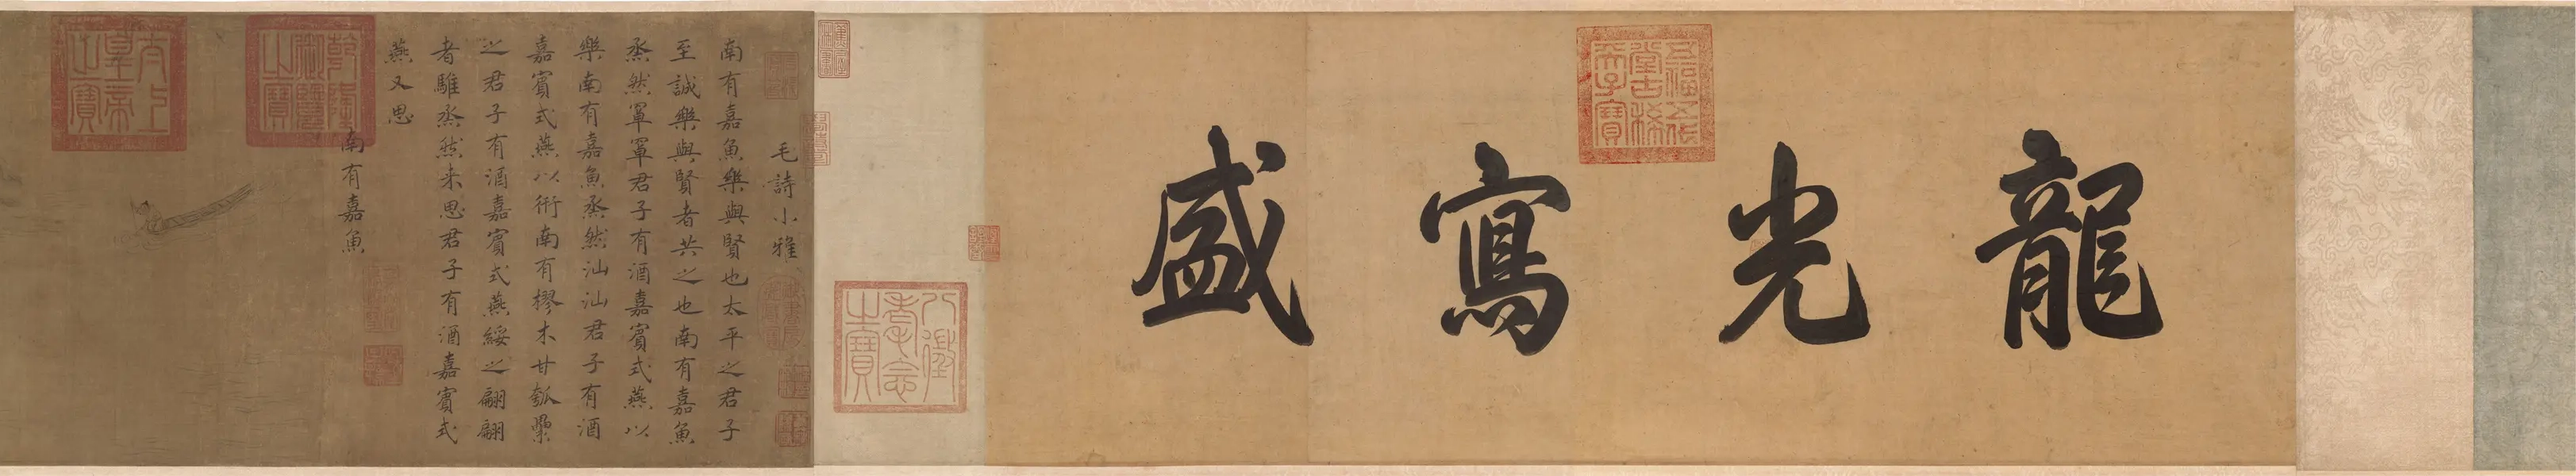 龍光寫盛
五福五代堂古稀天子寶
八徵耄念之寶
毛詩小雅
南有嘉魚樂與賢也太平之君子
至誠樂與賢者共之也南有嘉魚
烝然罩罩君子有酒嘉賓式燕以
樂南有嘉魚烝然汕汕君子有酒
嘉賓式燕以衎南有樛木甘瓠纍
之君子有酒嘉賓式燕綏之翩翩
者鵻烝然来思君子有酒嘉賓式
燕又思
南有嘉魚
乾隆御覽之寶
太上皇帝之寶